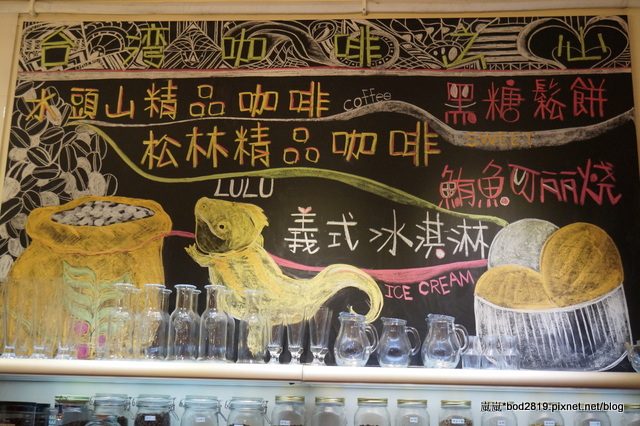 台灣咖啡之心
水頭山精品咖啡 coffee
黑糖鬆餅
松林精品咖啡
SWEET
鮪魚可丽燒
LULU
義式冰淇淋
ICE CREAM
嵐嵐*bod2819.pixnet.net/blog